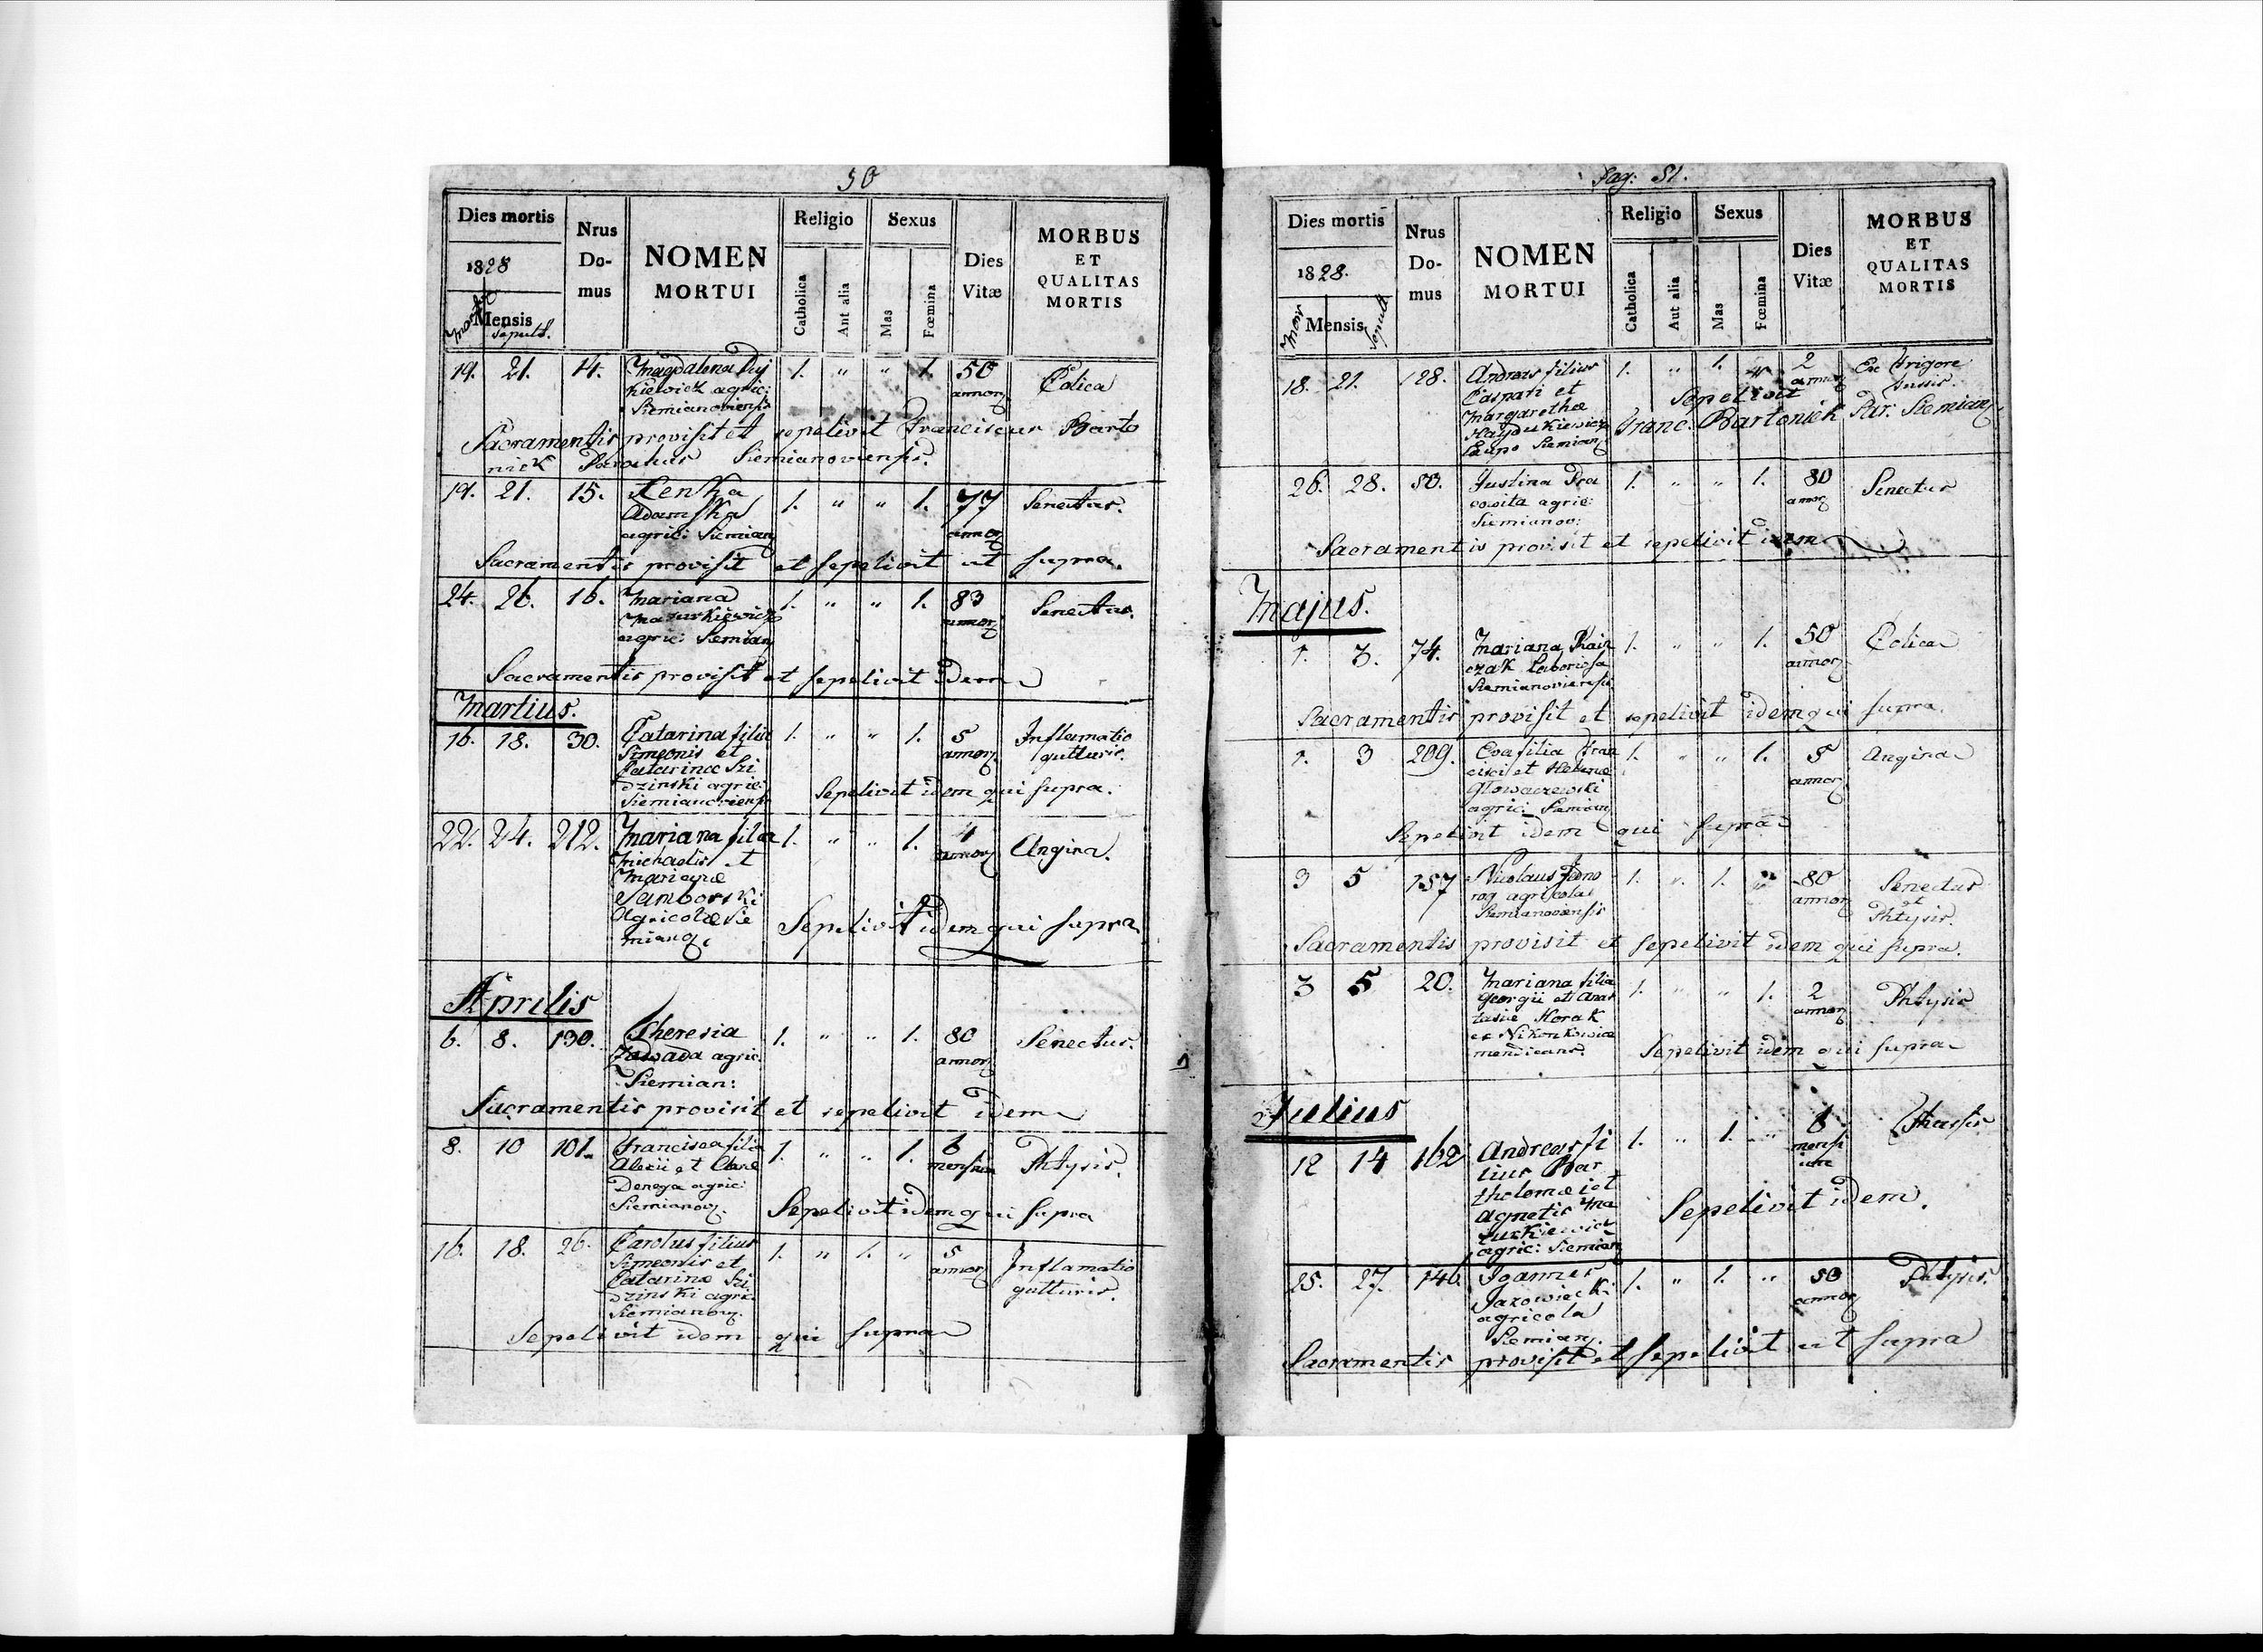 50
Dies mortis Nrus Do- mus NOMEN MORTUI Religio Sexus Dies Vitæ MORBUS ET QUALITAS MORTIS
1828 Catholica Aut alia Mas Fœmina
Mensis Sepult.
19. 21. 14. Magdalena 1. " " 1. 50 Colica
kiewicz agric: annor
Siemianoviensis
Sacramentis provisit et sepelivit Franciscus Barto
nick Parochus Siemianoviensis.
19. 21. 15. 1. " " 1. 77 Senectus.
Adamska annor
agric: Siemian
Sacramentis provisit et sepelivit ut supra.
24. 26. 16. Mariana 1. " " 1. 83 Senectus.
Mazurkiewicz annor
agric: Semian
Sacramentis provisit et sepelivit idem
Martius.
16. 18. 30. Catarina filia 1. " " 1. 5 Inflamatio
Simeonis et annor gutturis.
Catarinæ Szi
dzinski agric:
Siemianoviensis Sepelivit idem qui supra.
22. 24. 212. Mariana filia 1. " " 1. 4 Angina.
Michaelis et annor
Marianæ
Samborski
Agricolæ Sie
mianov. Sepelivit idem qui supra
Aprilis
6. 8. 130. Theresia 1. " " 1. 80 Senectus.
Zawada agric. annor
Siemian:
Sacramentis provisit et sepelivit idem
8. 10 101. Francisca filia 1. " " 1. 6 Phtysis.
Alexii et Annæ mensium
Denega agric:
Siemianov. Sepelivit idem qui supra
16. 18. 26. Carolus filius 1. " 1. " 5 Inflamatio
Simeonis et annor gutturis.
Catarinæ Szi
dzinski agric
Siemianov.
Sepelivit idem qui supra
Pag: 51.
Dies mortis Nrus Do- mus NOMEN MORTUI Religio Sexus Dies Vitæ MORBUS ET QUALITAS MORTIS
1828. Catholica Aut alia Mas Fœmina
Mor Mensis Sepult
18. 21. 128. Andreas filius 1. " 1. 2 Ex frigore
Caspari et annor tussis.
Margarethæ Sepelivit
Haydukiewicz Franc: Bartonick Par: Siemian
Siemian
26. 28. 50. Justina 1. " " 1. 80 Senectus
agric: annor
Siemianov:
Sacramentis provisit et sepelivit idem
Majus.
1. 3. 74. Mariana 1. " " 1. 50 Colica
czak Laboriosa annor
Siemianoviensis
Sacramentis provisit et sepelivit idem qui supra.
1. 3 209. Eva filia Fran 1. " " 1. 5 Angina
cisci et Helenæ annor
Glowaczewski
agric: Siemian
Sepelivit idem qui supra
3 5 157 Nicolaus Jedno 1. " 1. " 80 Senectus
rog agricola annor et
Siemianoviensis Phtysis.
Sacramentis provisit et sepelivit idem qui supra.
3 5 20. Mariana filia 1. " " 1. 2 Phtysis
Georgii et Anas annor
tasiæ Horak
ex Nikonkowice
mendicans. Sepelivit idem qui supra
Julius
12 14 162 Andreas fi 1. " 1. " 6
lius Bar mensi
tholomæi et um
Agnetis Ma
zurkiewicz Sepelivit idem.
agric: Siemian
25. 27. 146. Joannes 1. " 1. " 50 Phtysis.
Jazowiecki annor
agricola
Siemian.
Sacramentis provisit et sepelivit ut supra